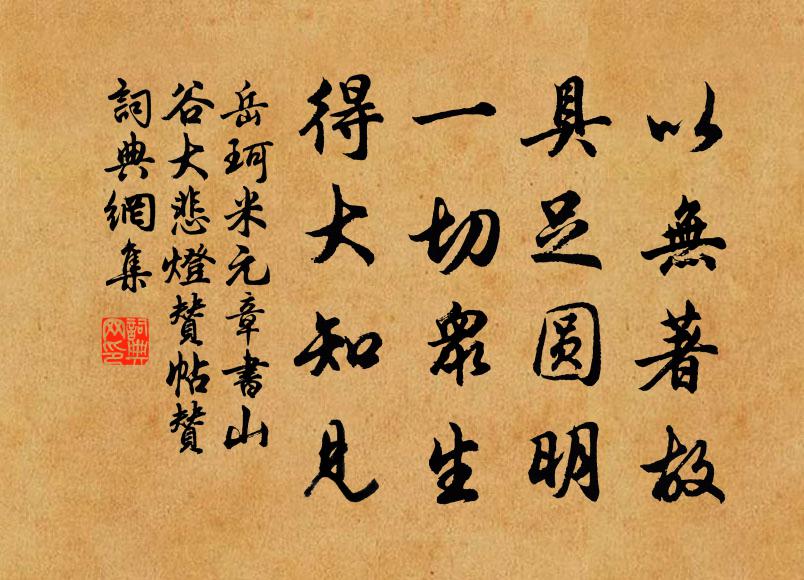 以無著故
具足圆明
一切眾生
得大知見
岳珂米元章書山
谷大悲燈贊帖贊
詞典網集
詞典網印